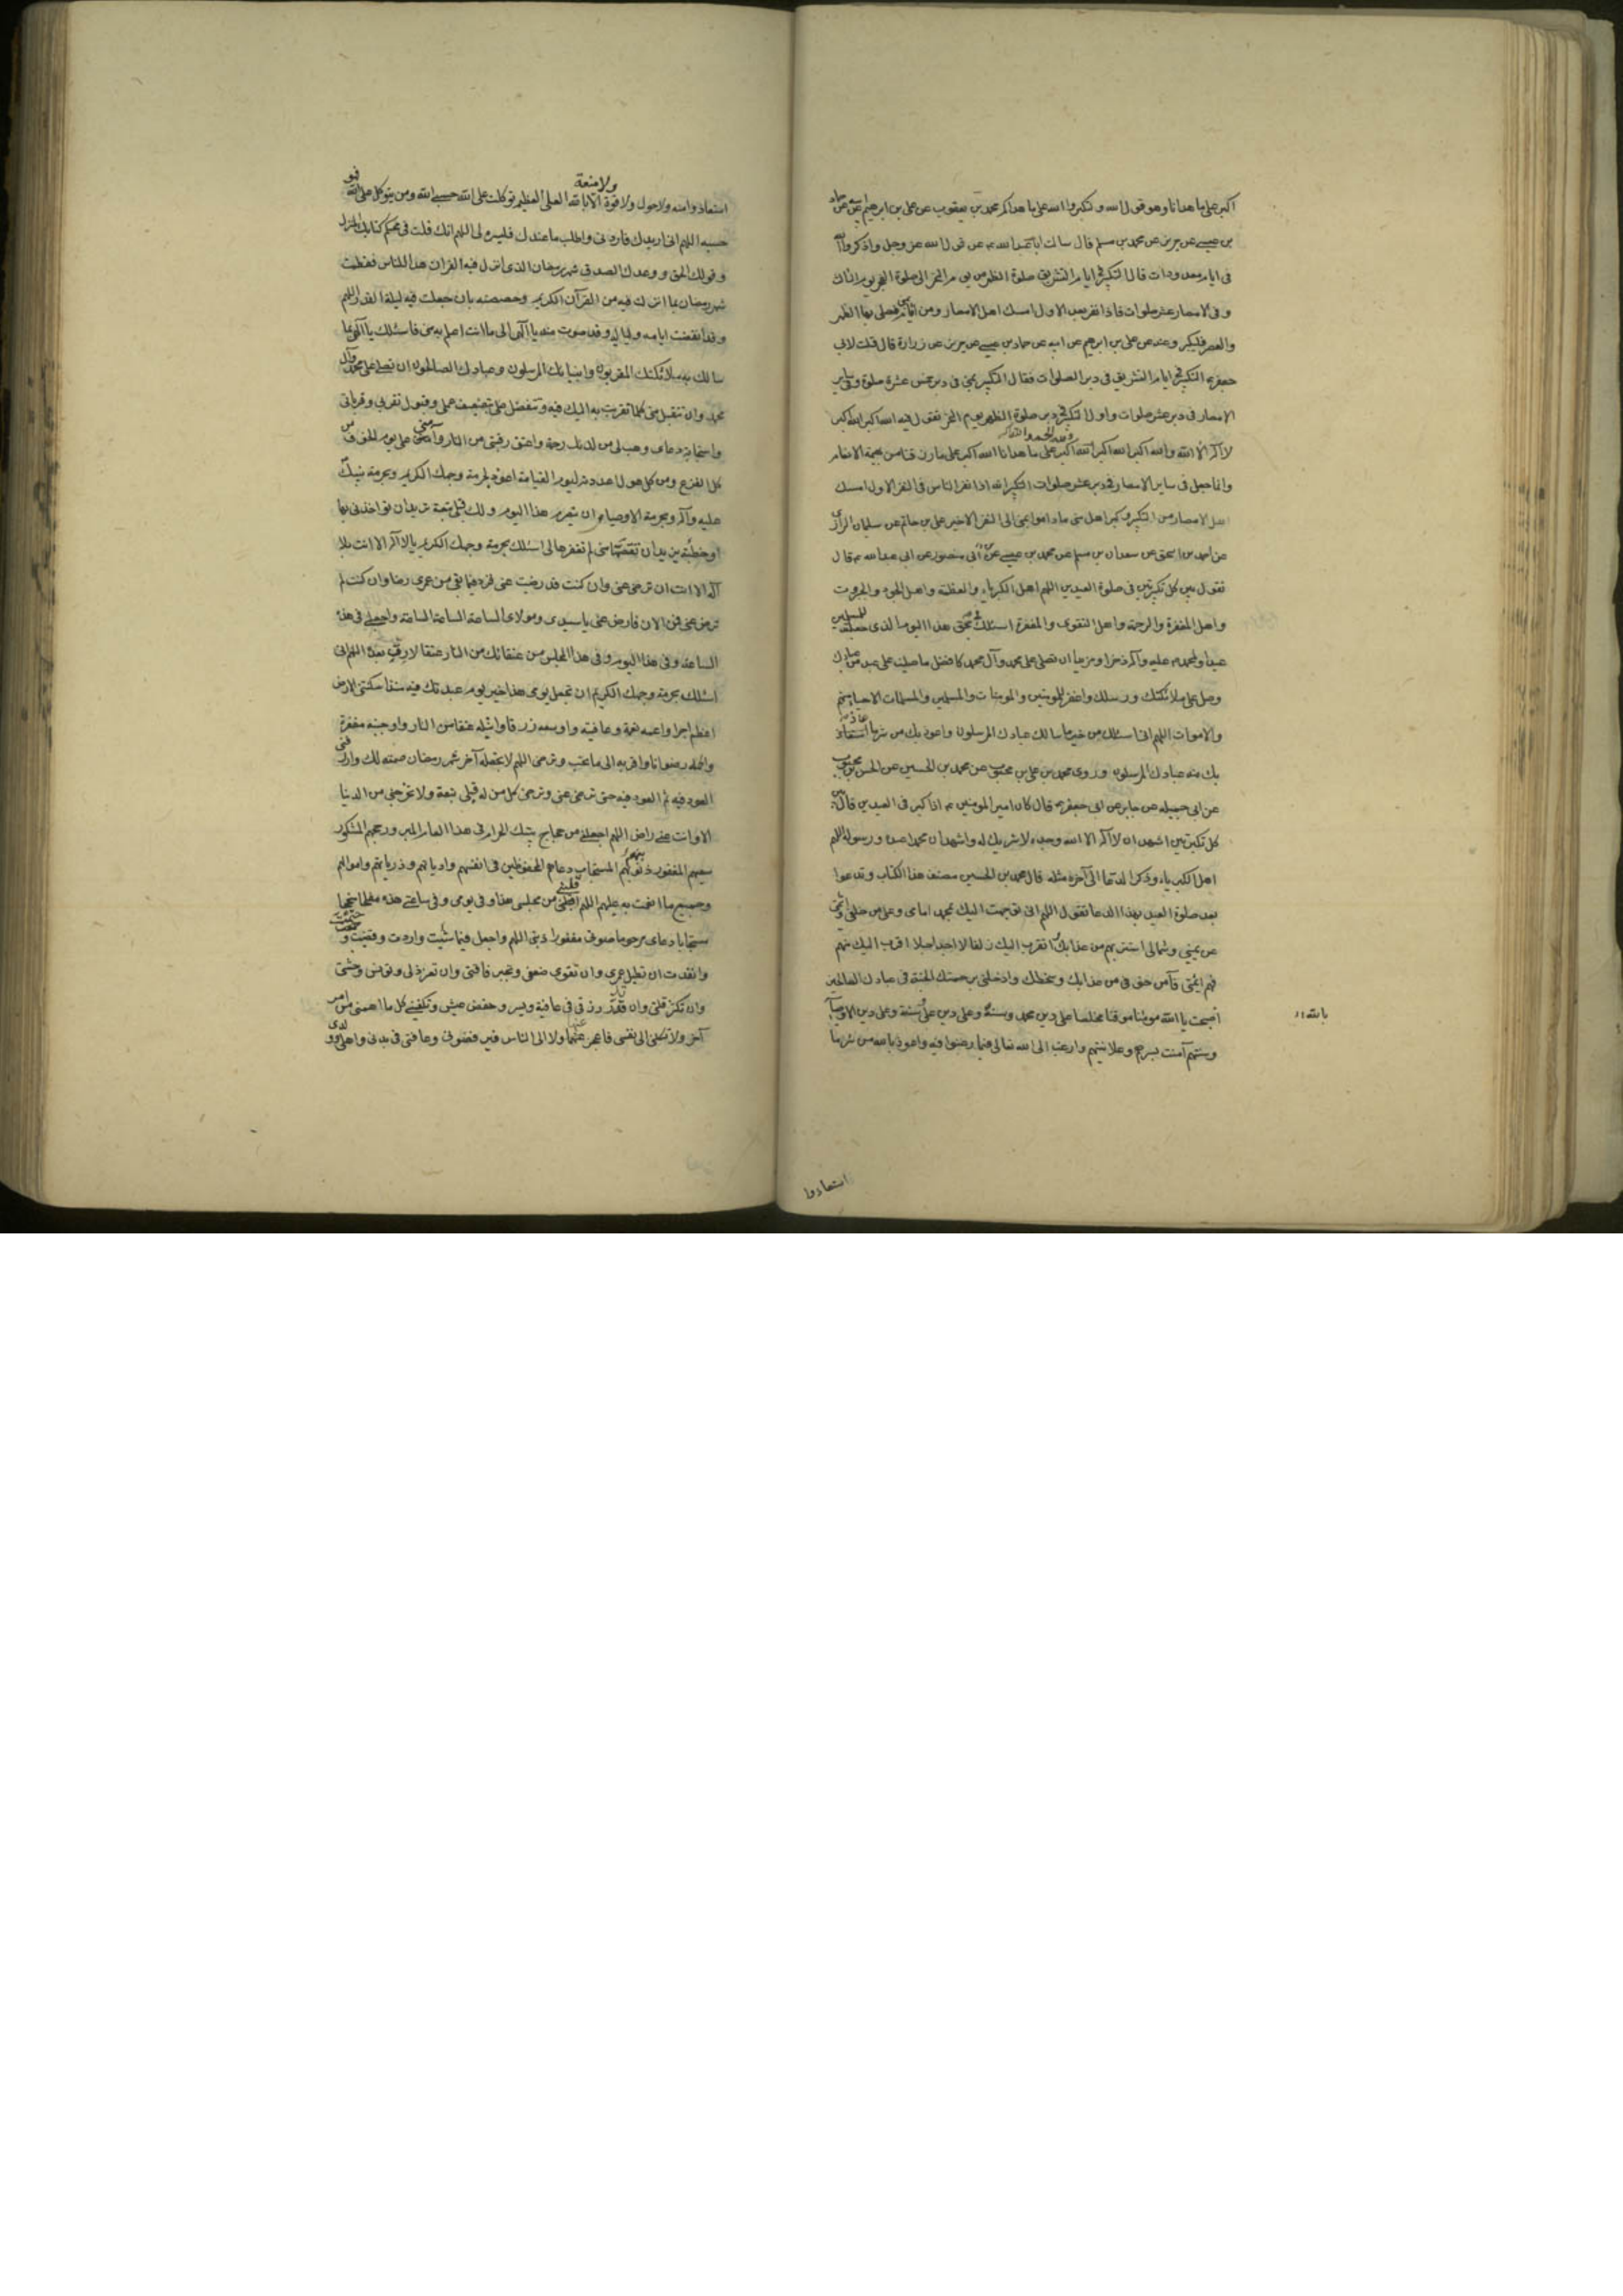 اكبر على ما هدانا وهو قول الله ولتكبروا الله على ما هداكم محمد بن يعقوب عن علي بن ابراهيم عن ابيه عن حماد
بن عيسى عن حريز عن محمد بن مسلم قال سالت ابا عبد الله ع عن قول الله عز وجل واذكروا الله
فى ايام معدودات قال التكبير فى ايام التشريق صلوة الظهر من يوم النحر الى صلوة الفجر يوم الثالث
وفى الامصار عشر صلوات فاذا نفر بعد الاول امسك اهل الامصار ومن اقام بمنى فصلى بها الظهر
والعصر فليكبر وعنه عن علي بن ابرهيم عن ابيه عن حماد بن عيسى عن حريز عن زرارة قال قلت لابى
جعفر ع التكبير فى ايام التشريق فى دبر الصلوات فقال التكبير بمنى فى دبر خمس عشرة صلوة وفى ساير
الامصار فى دبر عشر صلوات واول التكبير فى دبر صلوة الظهر يوم النحر تقول فيه الله اكبر الله اكبر
لا اله الا الله والله اكبر الله اكبر ولله الحمد الله اكبر على ما هدانا الله اكبر على ما رزقنا من بهيمة الانعام
وانما جعل فى ساير الامصار فى دبر عشر صلوات التكبير انه اذا نفر الناس فى النفر الاول امسك
اهل الامصار من التكبير وكبر اهل منى ما داموا بمنى الى النفر الاخير علي بن حاتم عن سليمان الرازى
عن احمد بن اسحق عن سعدان بن مسلم عن محمد بن عيسى عن ابى منصور عن ابى عبد الله ع قال
تقول بين كل تكبيرتين فى صلوة العيدين اللهم اهل الكبرياء والعظمة واهل الجود والجبروت
واهل المغفرة والرحمة واهل التقوى والمغفرة اسئلك بحق هذا اليوم الذى جعلته للمسلمين
عيدا ولمحمد ص عليه وآله ذخرا ومزيدا ان تصلى على محمد وآل محمد كافضل ما صليت على عبد من عبادك
وصل على ملائكتك ورسلك واغفر للمومنين والمومنات والمسلمين والمسلمات الاحياء منهم
والاموات اللهم انى اسئلك من خير ما سالك عبادك المرسلون واعوذ بك من شر ما عاذ
بك منه عبادك المرسلون وروى محمد بن على بن محبوب عن محمد بن الحسين عن الحسن بن محبوب
عن ابى جميله عن جابر عن ابى جعفر ع قال كان امير المومنين ع اذا كبر فى العيدين قال بين
كل تكبيرتين اشهد ان لا اله الا الله وحده لا شريك له واشهد ان محمدا عبده ورسوله اللهم
اهل الكبرياء وذكر الدعا الى آخره مثله قال محمد بن الحسين مصنف هذا الكتاب وتدعوا
بعد صلوة العيد بهذا الدعا تقول اللهم انى توجهت اليك بمحمد امامى وعلى من خلفى وائمتى
عن يمينى وشمالى استتر بهم من عذابك اتقرب اليك زلفا لا اجد احدا اقرب اليك منهم
فهم ائمتى فآمن خوفى من عذابك وسخطك وادخلنى برحمتك الجنة فى عبادك الصالحين
اصبحت يا الله مومنا موقنا مخلصا على دين محمد وسنته وعلى دين على وسنته وعلى دين الاوصيا
بالله
وسنتهم آمنت بسرهم وعلانيتهم وارغب الى الله تعالى فيما رغبوا فيه واعوذ بالله من شر ما
استعاذوا
ولا منعة
استعاذوا منه ولا حول ولا قوة الا بالله العلى العظيم توكلت على الله حسبى الله ومن يتوكل على الله فهو
حسبه اللهم انى اريدك فاردنى واطلب ما عندك فيسره لى اللهم انك قلت فى محكم كتابك المنزل
وقولك الحق ووعدك الصدق شهر رمضان الذى انزل فيه القران هدا للناس فعظمت
شهر رمضان بما انزلت فيه من القرآن الكريم وخصصته بان جعلت فيه ليلة القدر اللهم
وقد انقضت ايامه ولياليه وقد صرت منه يا الهى الى ما انت اعلم به منى فاسئلك يا الهى بما
سالك به ملائكتك المقربون وانبيائك المرسلون وعبادك الصالحون ان تصلى على محمد وآل
محمد وان تتقبل منى كلما تقربت به اليك فيه وتتفضل على بتضعيف عملى وقبول تقربى وقرباتى
واستجابة دعاى وهب لى من لدنك رحمة واعتق رقبتى من النار وآمنى يوم الخوف من
كل الفزع ومن كل هول اعددته ليوم القيامة اعوذ بحرمة وجهك الكريم وبحرمة نبيك
عليه وآله وبحرمة الاوصياء ان يتصرم هذا اليوم ولك قبلى تبعة تريد ان تواخذنى بها
او خطيئة تريد ان تقتصها منى لم تغفرها لى اسئلك بحرمة وجهك الكريم يا لا اله الا انت بلا
اله الا انت ان ترضى عنى وان كنت قد رضيت عنى فزد فيما بقى من عمرى رضا وان كنت لم
ترض عنى فمن الان فارض عنى يا سيدى ومولاى الساعة الساعة الساعة واجعلنى فى هذه
الساعة وفى هذا اليوم وفى هذا المجلس من عتقائك من النار عتقا لا رق بعده اللهم انى
اسئلك بحرمة وجهك الكريم ان تجعل يومى هذا خير يوم عبدتك فيه منذ اسكنتنى الارض
اعظمه اجرا واعمه نعمة وعافية واوسعه رزقا وابتله عتقا من النار واوجبه مغفرة
واكمله رضوانا واقربه الى ما تحب وترضى اللهم لا تجعله آخر شهر رمضان صمته لك وارزقنى
العود فيه ثم العود فيه حتى ترضى عنى وترضى كل من له قبلى تبعة ولا تخرجنى من الدنيا
الا وانت عنى راض اللهم اجعلنى من حجاج بيتك الحرام فى هذا العام المبرور حجهم المشكور
سعيهم المغفور ذنوبهم المستجاب دعاهم المحفوظين فى انفسهم واديانهم وذرياتهم واموالهم
وجميع ما انعمت به عليهم اللهم اقلبنى من مجلسى هذا وفى يومى وفى ساعتى هذه مفلحا منجحا
مستجابا دعاى مرحوما صوتى مغفورا ذنبى اللهم واجعل فيما شئت واردت وقضيت وحتمت
وانفذت ان تطيل عمرى وان تقوى ضعفى وتجبر فاقتى وان تعز ذلى وتونس وحشتى
وان تكثر قلتى وان تدر رزقى فى عافية ويسر وخفض عيش وتكفينى كل ما اهمنى من امر
آخر ولا تكلنى الى نفسى فاعجز عنها ولا الى الناس فيرفضونى وعافنى فى بدنى واهلى وولدى